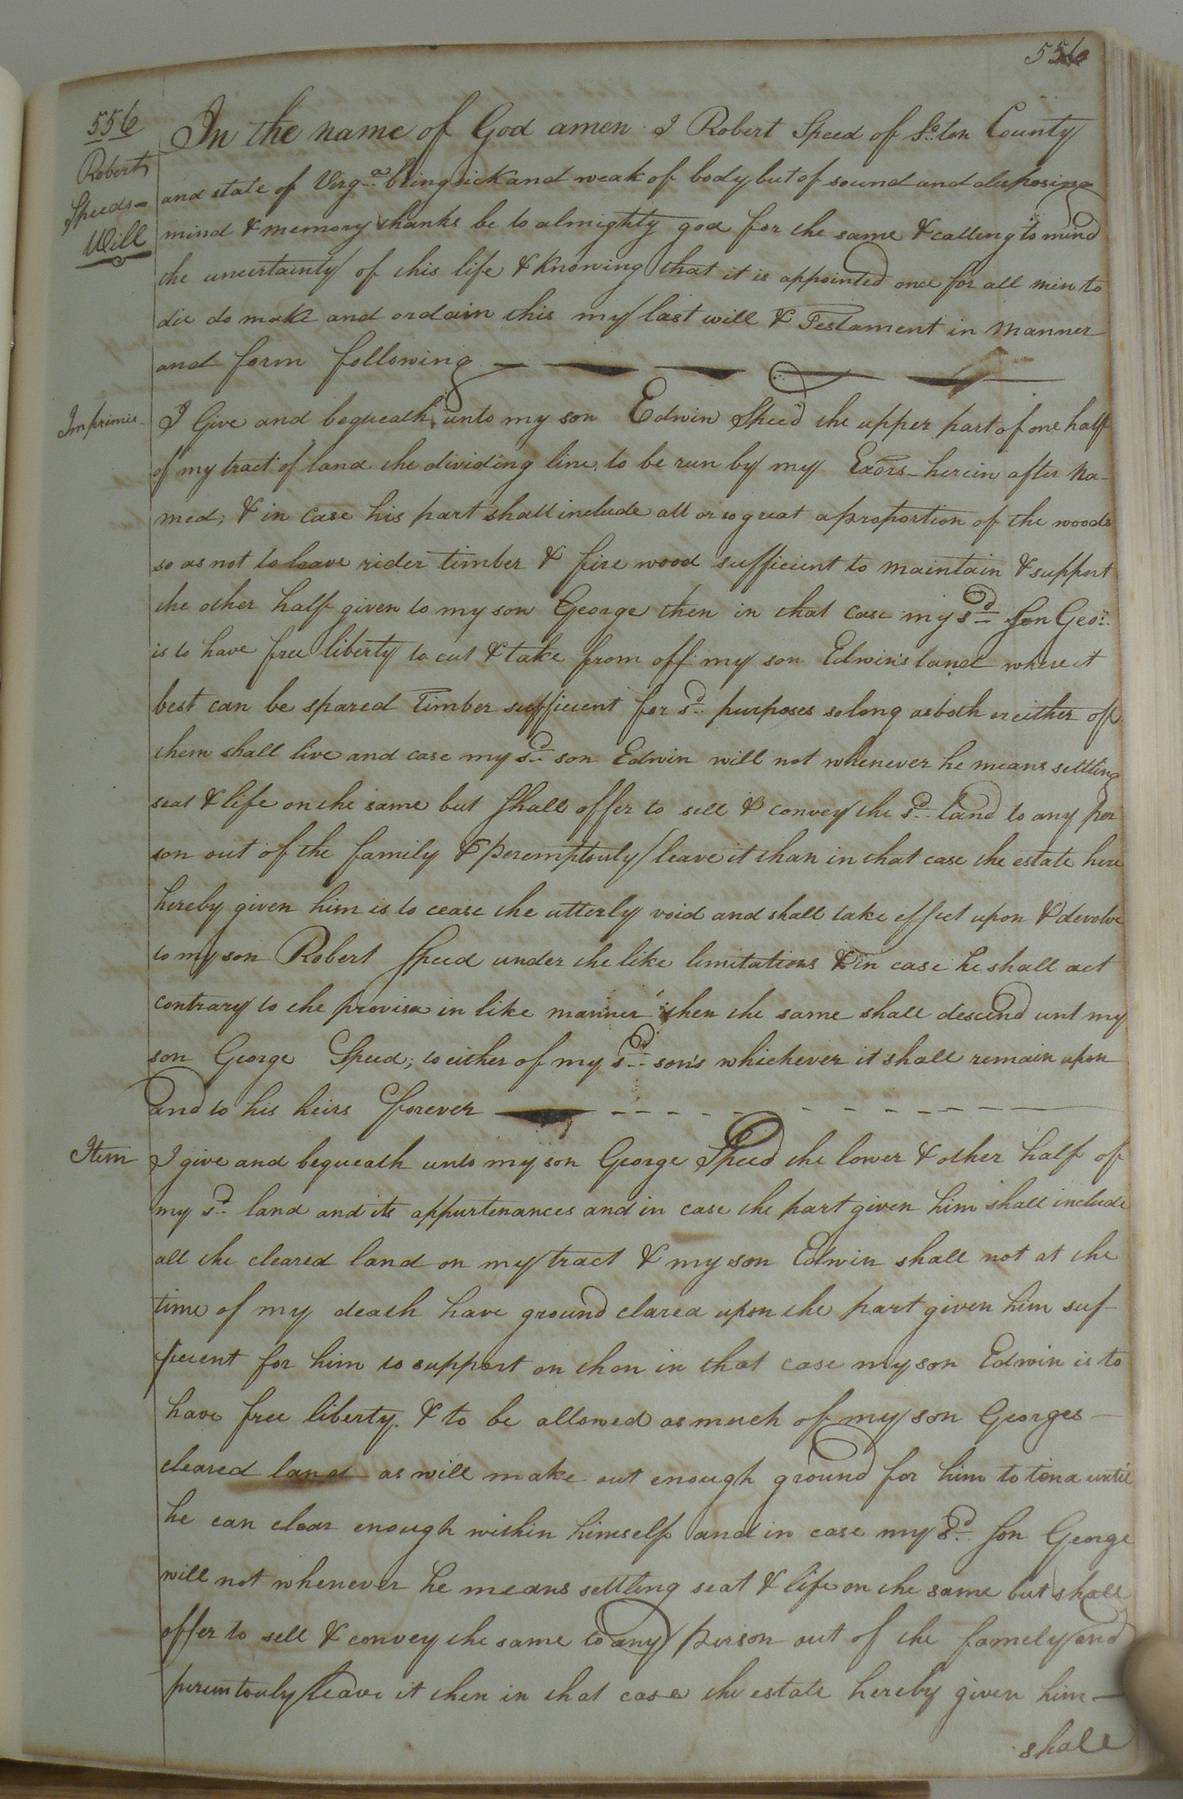 556
556
Roberts
Speeds
Will
In the name of God amen I Robert Speed of So.ton County
and state of Virga. being sick and weak of body but of sound and disposing
mind & memory thanks be to almighty god for the same & calling to mind
the uncertainty of this life & knowing that it is appointed once for all men to
die do make and ordain this my last will & Testament in manner
and form following
Imprimis
I Give and bequeath unto my son Edwin Speed the upper part of one half
of my tract of land the dividing line to be run by my Exors herein after na-
med; & in case his part shall include all or so great a proportion of the woods
so as not to leave rider timber & fire wood sufficient to maintain & support
the other half given to my son George then in that case my sd. Son Geo.
is to have free liberty to cut & take from off my son Edwin's land where it
best can be spared Timber sufficient for sd. purposes so long as both or either of
them shall live and case my sd. son Edwin will not whenever he means settling
seat & life on the same but shall offer to sell & convey the sd. land to any per
son out of the family & peremptouly leave it than in that case the estate here
hereby given him is to cease the utterly void and shall take effect upon & devolve
to my son Robert Speed under the like limitations & in case he shall act
contrary to the proviso in like manner then the same shall descend unt my
son George Speed; to either of my sd. son's whichever it shall remain upon
and to his heirs forever
Item
I give and bequeath unto my son George Speed the lower & other half of
my sd. land and its appurtenances and in case the part given him shall include
all the cleared land on my tract & my son Edwin shall not at the
time of my death have ground clared upon the part given him suf-
ficent for him to support on then in that case my son Edwin is to
have free liberty. & to be allowed as much of my son Georges
cleared land as will make out enough ground for him to tend until
he can clear enough within himself and in case my sd. Son George
will not whenever he means settling seat & life on the same but shall
offer to sell & convey the same to any person out of the family and
peremtouly leave it then in that case the estate hereby given him
shall